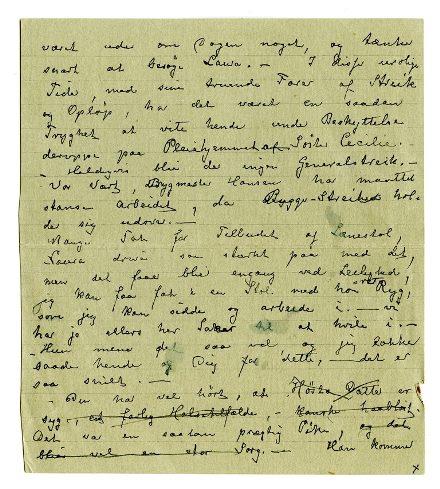 været ude om Dagen noget, og tænker
snart at besøge Laura. — I disse urolige
Tider, med sine truende Farer af Streik
og Opløp, har det været en saadan
Tryghet at vite hende under Beskyttelse
deroppe paa Pleiehjemmet af Søster Cecilie. —
— Heldigvis blir de ingen Generalstreik. —
— Vor Vært, Bygmester Hansen har maattet
stanse arbeidet, da Bygge-Streiken hol-
der sig endnu. —
Mange Tak for Tilbudet af Lænestol,
Laura driver saa stærkt paa med det,
men det faar bli engang ved Leilighed,
jeg kan faa fat i en Stol med høi Ryg,
som jeg kan sidde og arbeide i. — vi
har jo ellers her Sofaer til at hvile i. —
— Hun mener det saa vel og jeg takker
saade hende og Dig for dette, — det er
saa snilt. —
— Du har vel hørt, at Datter er
syg, en farlig
Det var en saadan prægtig Pike, og det
blir vel en stor Sorg. — Han kommer
x